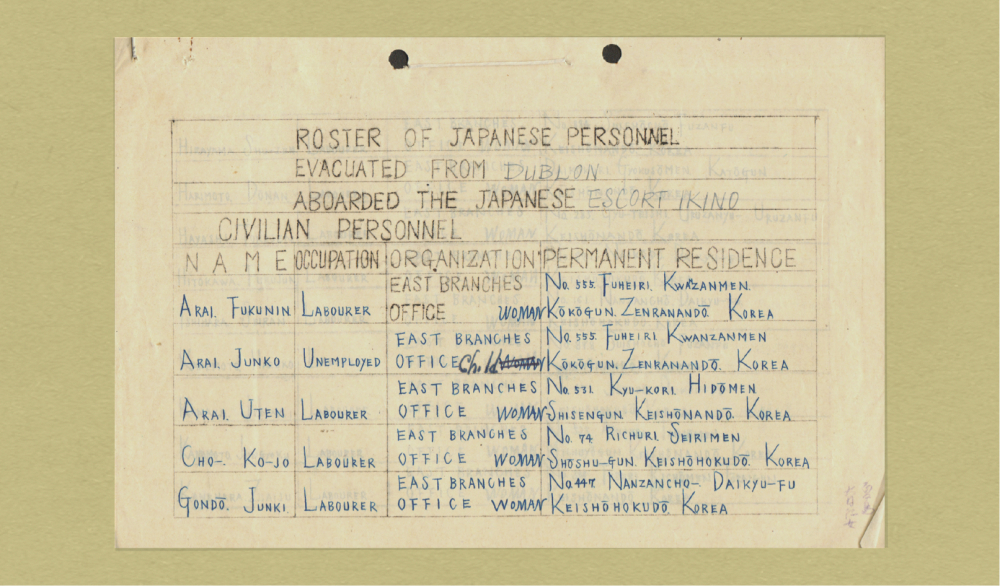 ROSTER OF JAPANESE PERSONNEL
EVACUATED FROM DUBLON
ABOARDED THE JAPANESE ESCORT IKINO
CIVILIAN PERSONNEL
NAME OCCUPATION ORGANIZATION PERMANENT RESIDENCE
EAST BRANCHES No. 555. FUHEIRI. KWAZANMEN.
ARAI. FUKUNIN LABOURER OFFICE WOMAN KŌKŌGUN. ZENRANANDŌ. KOREA
EAST BRANCHES No. 555. FUHEIRI KWANZANMEN
ARAI. JUNKO UNEMPLOYED OFFICE Child KŌKŌGUN. ZENRANANDŌ. KOREA
EAST BRANCHES No. 531. KYU-KORI. HIDŌMEN
ARAI. UTEN LABOURER OFFICE WOMAN SHISENGUN. KEISHŌNANDŌ. KOREA
EAST BRANCHES No. 74 RICHURI. SEIRIMEN
CHO-. KO-JO LABOURER OFFICE WOMAN SHŌSHU-GUN. KEISHŌHOKUDŌ. KOREA
EAST BRANCHES No. 447 NANZANCHO-. DAIKYU-FU
GONDŌ. JUNKI LABOURER OFFICE WOMAN KEISHŌHOKUDŌ KOREA